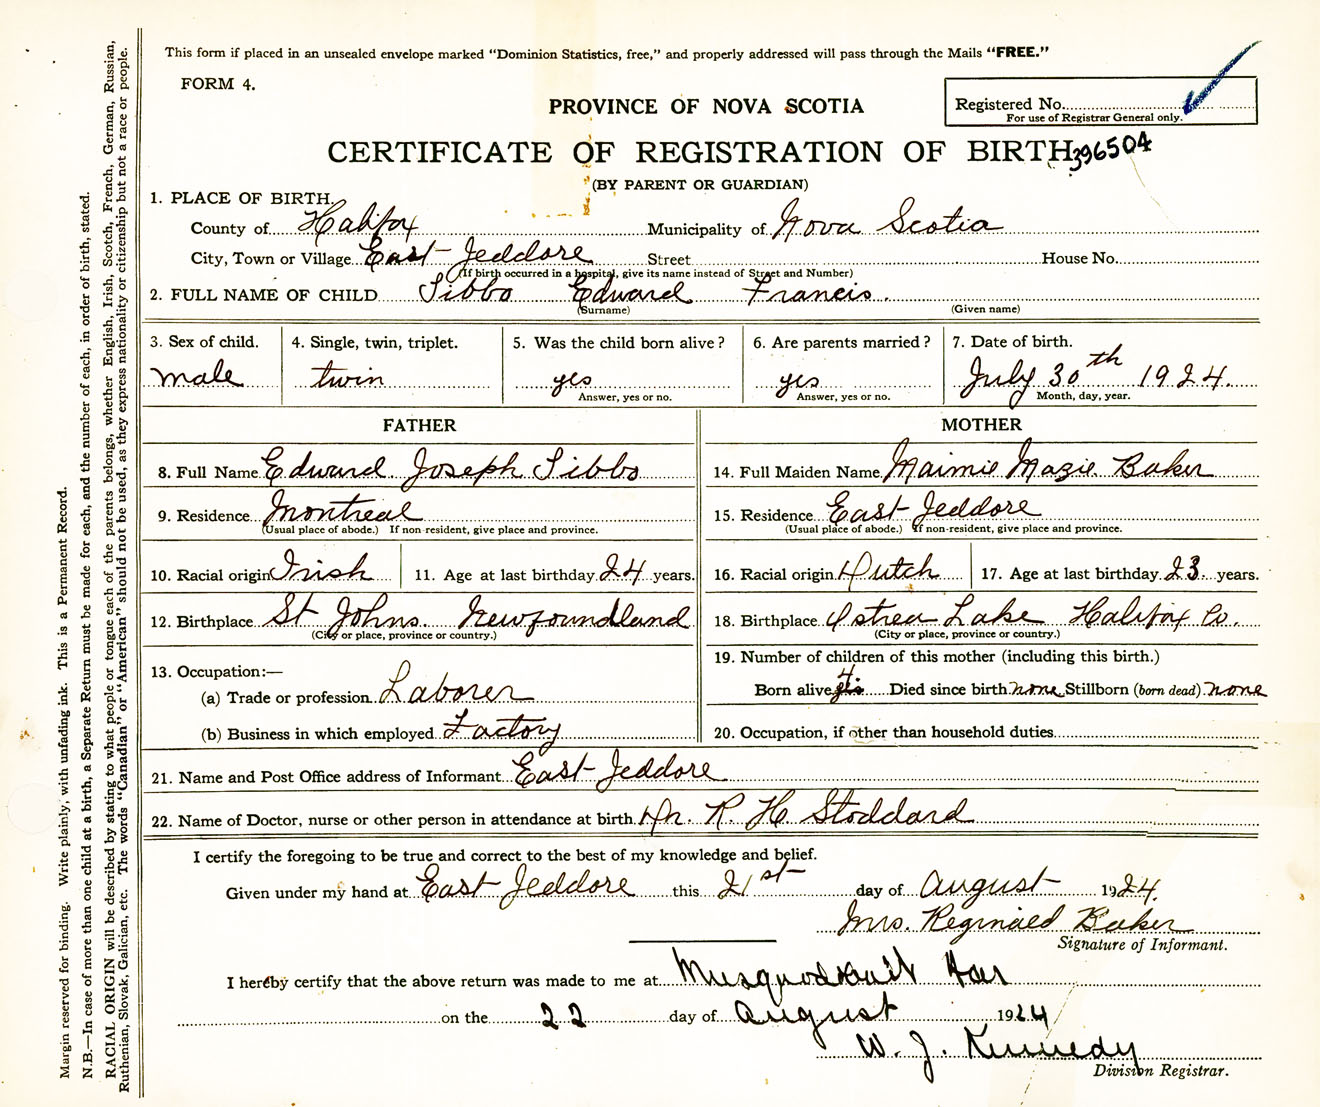 This form if placed in an unsealed envelope marked "Dominion Statistics, free," and properly addressed will pass through the Mails "FREE."
FORM 4.
Registered No.
For use of Registrar General only.
PROVINCE OF NOVA SCOTIA
CERTIFICATE OF REGISTRATION OF BIRTH 396504
(BY PARENT OR GUARDIAN)
1. PLACE OF BIRTH.
County of Halifax Municipality of Nova Scotia
City, Town or Village East Jeddore Street House No.
(If birth occurred in a hospital, give its name instead of Street and Number)
2. FULL NAME OF CHILD Sibbo Edward Francis.
(Surname) (Given name)
3. Sex of child. 4. Single, twin, triplet. 5. Was the child born alive? 6. Are parents married? 7. Date of birth.
male twin yes yes July 30th 1924.
Answer, yes or no. Answer, yes or no. Month, day, year.
FATHER MOTHER
8. Full Name Edward Joseph Sibbo
14. Full Maiden Name Maimie Mazie Baker
9. Residence Montreal
(Usual place of abode.) If non-resident, give place and province.
15. Residence East Jeddore
(Usual place of abode.) If non-resident, give place and province.
10. Racial origin Irish 11. Age at last birthday 24 years.
16. Racial origin Dutch 17. Age at last birthday 23 years.
12. Birthplace St Johns. Newfoundland
(City or place, province or country.)
18. Birthplace Ostrea Lake Halifax Co.
(City or place, province or country.)
13. Occupation:—
(a) Trade or profession Laborer
(b) Business in which employed Factory
19. Number of children of this mother (including this birth.)
Born alive 4 Died since birth none Stillborn (born dead) none
20. Occupation, if other than household duties
21. Name and Post Office address of Informant East Jeddore
22. Name of Doctor, nurse or other person in attendance at birth Dr. R. H Stoddard
I certify the foregoing to be true and correct to the best of my knowledge and belief.
Given under my hand at East Jeddore this 21st day of August 1924.
Mrs. Reginald Baker
Signature of Informant.
I hereby certify that the above return was made to me at Musquodoboit Har
on the 22 day of August 1924
W. J. Kennedy
Division Registrar.
Margin reserved for binding. Write plainly, with unfading ink. This is a Permanent Record.
N.B.—In case of more than one child at a birth, a Separate Return must be made for each, and the number of each, in order of birth, stated.
RACIAL ORIGIN will be described by stating to what people or tongue each of the parents belongs, whether English, Irish, Scotch, French, German, Russian,
Ruthenian, Slovak, Galician, etc. The words "Canadian" or "American" should not be used, as they express nationality or citizenship but not a race or people.